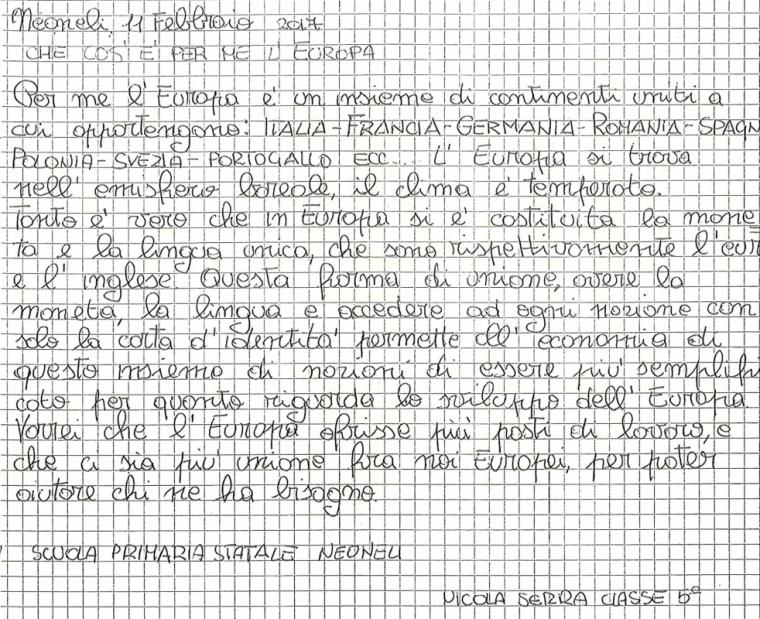 Neoneli, 11 Febbraio 2017
CHE COS' È PER ME L' EUROPA
Per me l' Europa è un insieme di continenti uniti a
cui appartengono: ITALIA-FRANCIA-GERMANIA-ROMANIA-SPAGN
POLONIA-SVEZIA-PORTOGALLO ECC... L' Europa si trova
nell' emisfero boreale, il clima è temperato.
Tanto è vero che in Europa si è costituita la mone
ta e la lingua unica, che sono rispettivamente l'eur
e l' inglese. Questa forma di unione, avere la
moneta, la lingua e accedere ad ogni nazione con
solo la carta d'identità permette all' economia di
questo insieme di nazioni di essere più semplifi
cato per quanto riguarda lo sviluppo dell' Europa.
Vorrei che l' Europa ofrisse più posti di lavoro, e
che ci sia più unione fra noi Europei, per poter
aiutare chi ne ha bisogno.
SCUOLA PRIMARIA STATALE NEONELI
NICOLA SERRA CLASSE 5ª